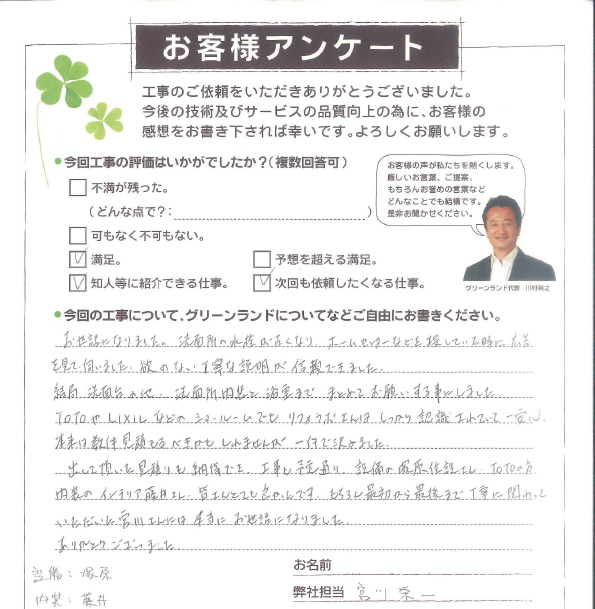 お客様アンケート
工事のご依頼をいただきありがとうございました。
今後の技術及びサービスの品質向上の為に、お客様の
感想をお書き下されば幸いです。よろしくお願いします。
●今回工事の評価はいかがでしたか？（複数回答可）
不満が残った。
（どんな点で？：）
可もなく不可もない。
満足。
予想を超える満足。
知人等に紹介できる仕事。
次回も依頼したくなる仕事。
お客様の声が私たちを熱くします。
厳しいお言葉、ご提案、
もちろんお誉めの言葉など
どんなことでも結構です。
是非お聞かせください。
グリーンランド代表 川村英之
●今回の工事について、グリーンランドについてなどご自由にお書きください。
お世話になりました。洗面所の水栓が古くなり、ホームセンターなどを探していた時に広告
を見て伺いました。欲のない丁寧な説明が信頼できました。
結局洗面台の他、洗面所内装と浴室まで まとめてお願いする事にしました。
TOTOやLIXILなどのショールームでもリフォらボさんはしっかり認識されていて一安心。
本来は数件見積もるべきかもしれませんが 一件で決めました。
出して頂いた見積りも納得でき、工事も予定通り、設備の塚原住設さん、TOTOの方
内装のインテリア藤井さん、皆さんとても良かったです。もちろん最初から最後まで丁寧に関わって
いただいた宮川さんには本当にお世話になりました。
ありがとうございました。
設備：塚原
内装：藤井
お名前
弊社担当 宮川栄一